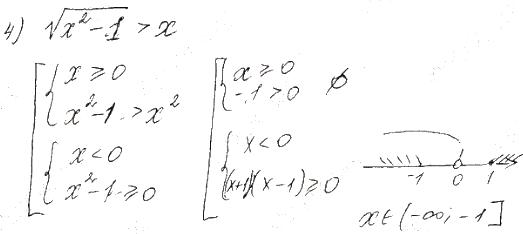 4) √(x²-1) > x
[ { x ≥ 0
x²-1 > x²
{ x < 0
x²-1 ≥ 0
[ { x ≥ 0
-1 > 0 ∅
{ x < 0
(x+1)(x-1) ≥ 0
-1 0 1
x∈(-∞; -1]